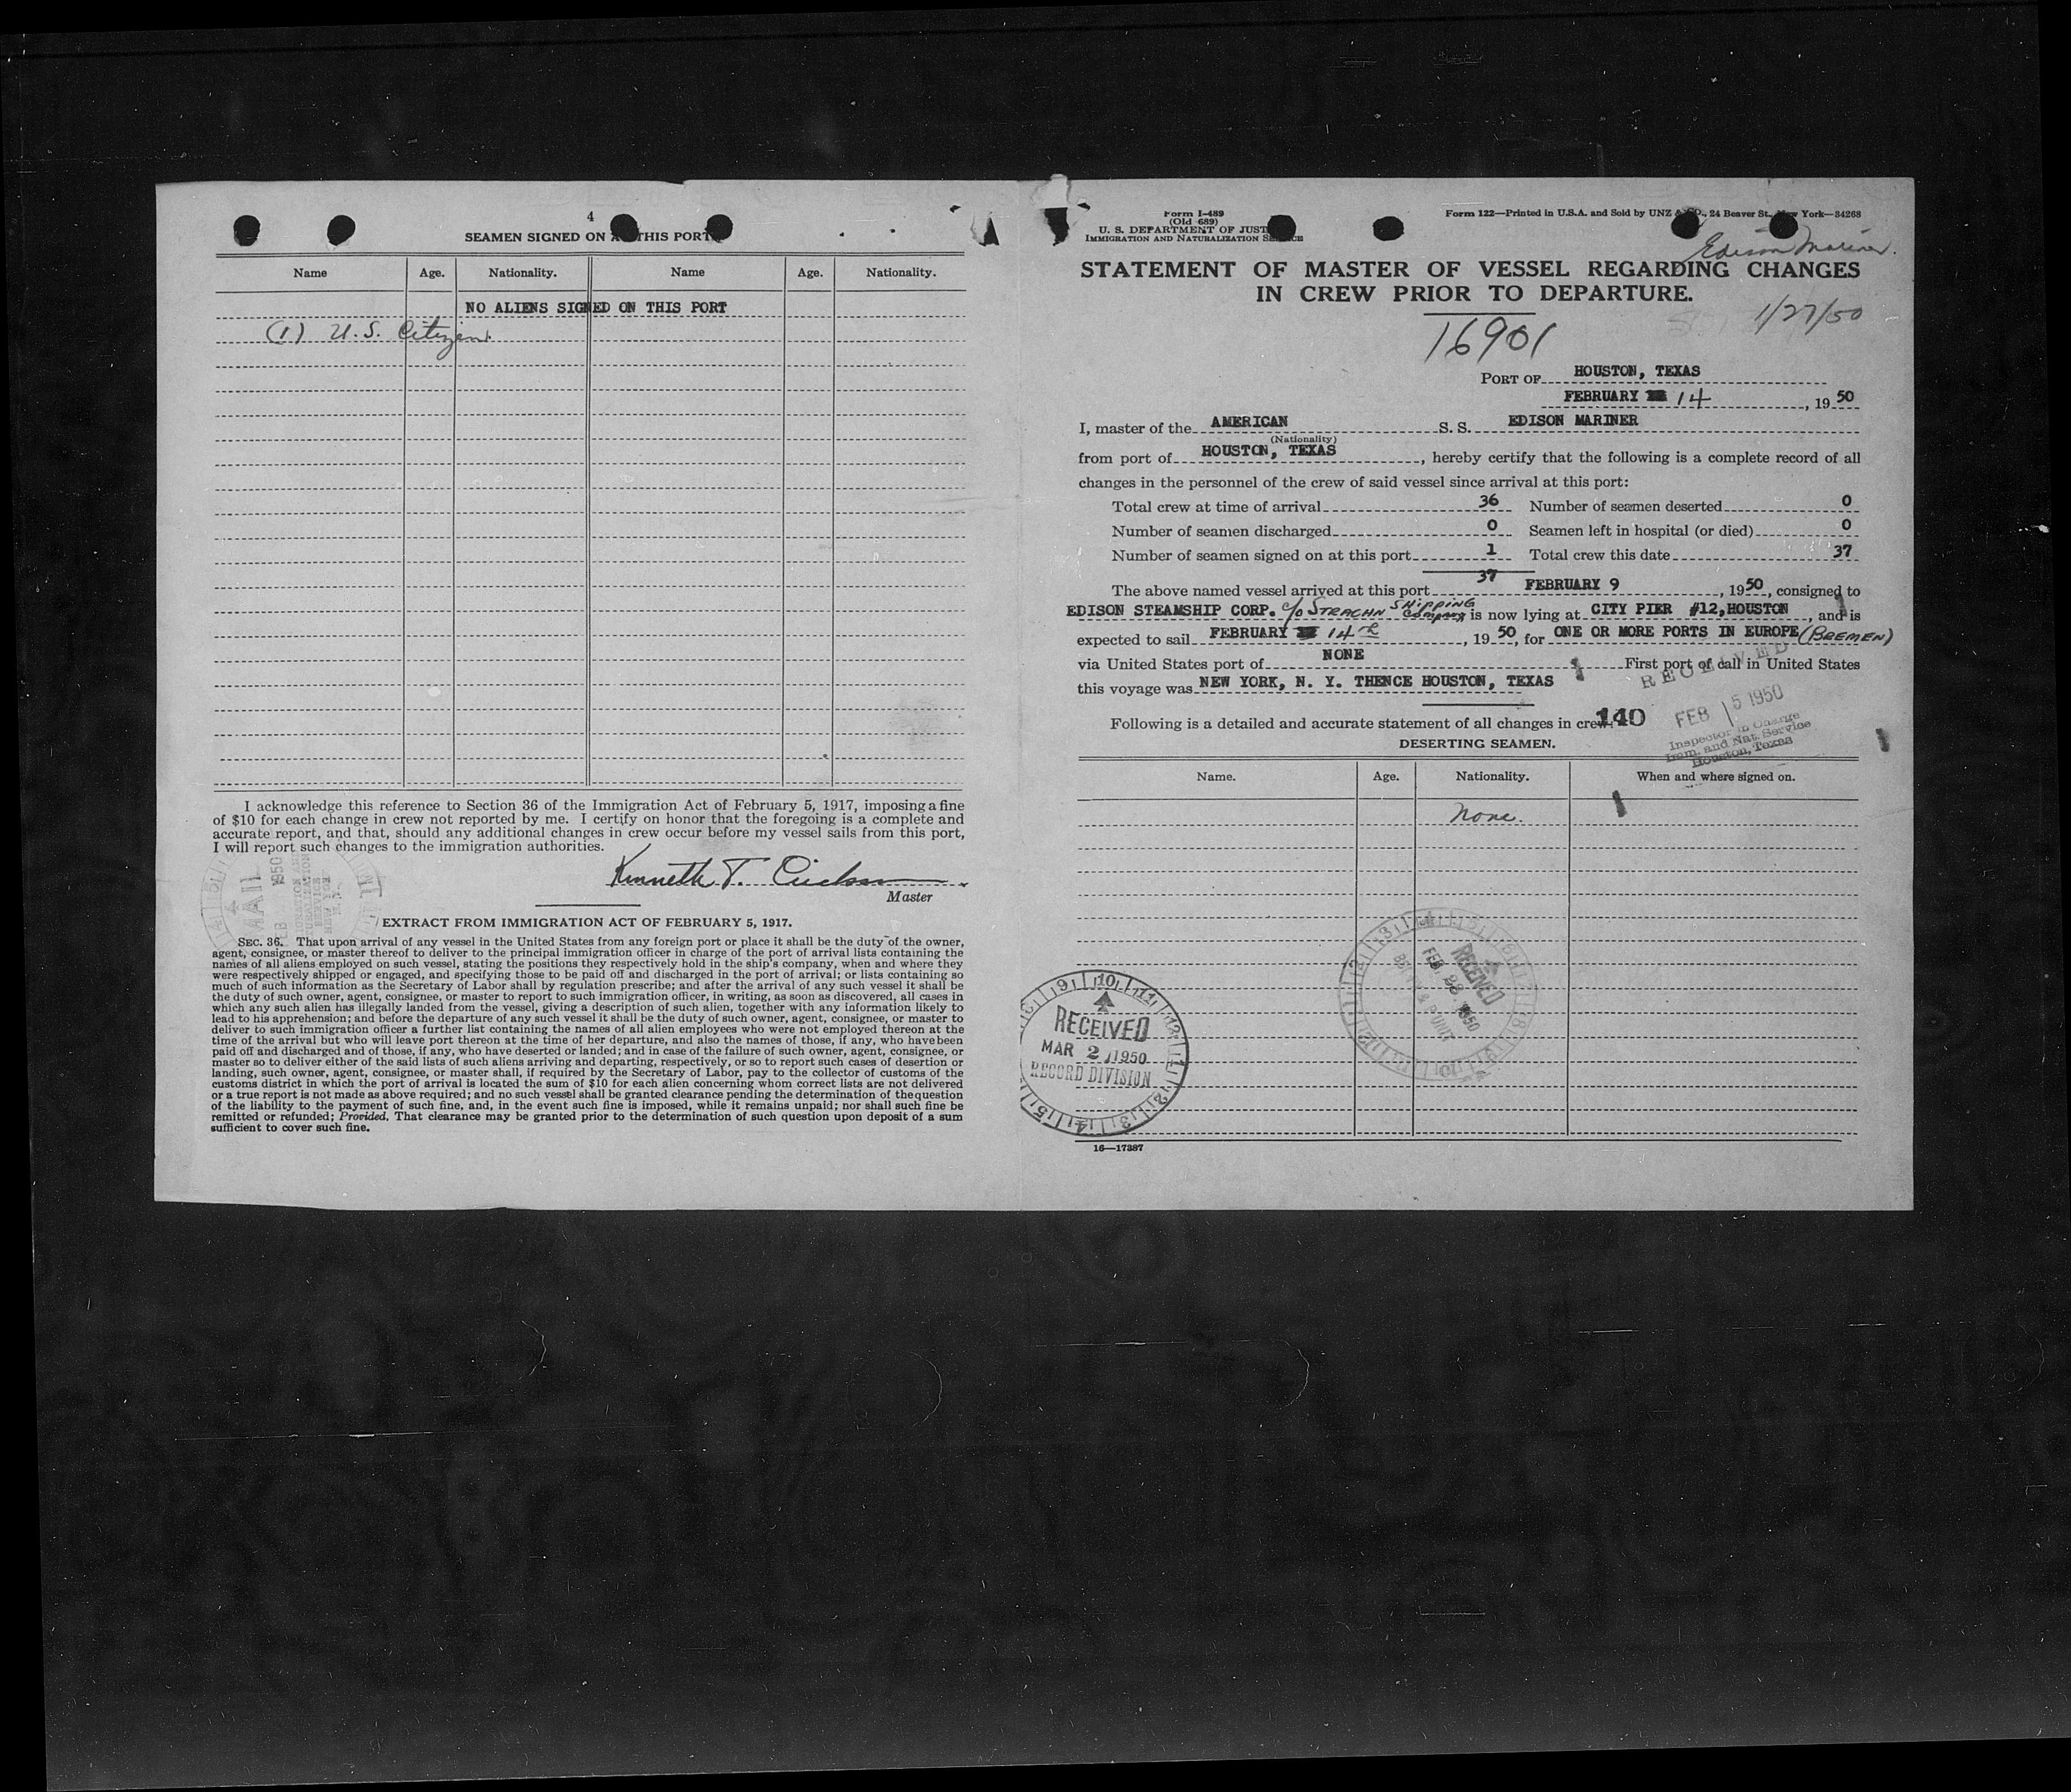 4
SEAMEN SIGNED ON THIS PORT
Name Age. Nationality. Name Age. Nationality.
NO ALIENS SIGNED ON THIS PORT
(1) U.S. Citizen
I acknowledge this reference to Section 36 of the Immigration Act of February 5, 1917, imposing a fine
of $10 for each change in crew not reported by me. I certify on honor that the foregoing is a complete and
accurate report, and that, should any additional changes in crew occur before my vessel sails from this port,
I will report such changes to the immigration authorities.
Kenneth T.
Master
MAIL
1950
EXTRACT FROM IMMIGRATION ACT OF FEBRUARY 5, 1917.
SEC. 36. That upon arrival of any vessel in the United States from any foreign port or place it shall be the duty of the owner,
agent, consignee, or master thereof to deliver to the principal immigration officer in charge of the port of arrival lists containing the
names of all aliens employed on such vessel, stating the positions they respectively hold in the ship's company, when and where they
were respectively shipped or engaged, and specifying those to be paid off and discharged in the port of arrival; or lists containing so
much of such information as the Secretary of Labor shall by regulation prescribe; and after the arrival of any such vessel it shall be
the duty of such owner, agent, consignee, or master to report to such immigration officer, in writing, as soon as discovered, all cases in
which any such alien has illegally landed from the vessel, giving a description of such alien, together with any information likely to
lead to his apprehension; and before the departure of any such vessel it shall be the duty of such owner, agent, consignee, or master to
deliver to such immigration officer a further list containing the names of all alien employees who were not employed thereon at the
time of the arrival but who will leave port thereon at the time of her departure, and also the names of those, if any, who have been
paid off and discharged and of those, if any, who have deserted or landed; and in case of the failure of such owner, agent, consignee, or
master so to deliver either of the said lists of such aliens arriving and departing, respectively, or so to report such cases of desertion or
landing, such owner, agent, consignee, or master shall, if required by the Secretary of Labor, pay to the collector of customs of the
customs district in which the port of arrival is located the sum of $10 for each alien concerning whom correct lists are not delivered
or a true report is not made as above required; and no such vessel shall be granted clearance pending the determination of the question
of the liability to the payment of such fine, and, in the event such fine is imposed, while it remains unpaid; nor shall such fine be
remitted or refunded; Provided, That clearance may be granted prior to the determination of such question upon deposit of a sum
sufficient to cover such fine.
Form I-489
(Old 689)
U. S. DEPARTMENT OF JUST
IMMIGRATION AND NATURALIZATION SERVICE
Form 122—Printed in U.S.A. and Sold by UNZ & CO., 24 Beaver St., New York—34268
Edison Mariner.
STATEMENT OF MASTER OF VESSEL REGARDING CHANGES
IN CREW PRIOR TO DEPARTURE.
1/27/50
16901
PORT OF HOUSTON, TEXAS
FEBRUARY 14, 1950
I, master of the AMERICAN S. S. EDISON MARINER
(Nationality)
from port of HOUSTON, TEXAS, hereby certify that the following is a complete record of all
changes in the personnel of the crew of said vessel since arrival at this port:
Total crew at time of arrival 36 Number of seamen deserted 0
Number of seamen discharged 0 Seamen left in hospital (or died) 0
Number of seamen signed on at this port 1 Total crew this date 37
37
The above named vessel arrived at this port FEBRUARY 9, 1950, consigned to
EDISON STEAMSHIP CORP. c/o STRACHN SHIPPING Company is now lying at CITY PIER #12, HOUSTON, and is
expected to sail FEBRUARY 14th, 1950, for ONE OR MORE PORTS IN EUROPE (BREMEN)
via United States port of NONE First port of call in United States
this voyage was NEW YORK, N. Y. THENCE HOUSTON, TEXAS
RECEIVED
FEB 15 1950
Inspector in Charge
Imm. and Nat. Service
Houston, Texas
Following is a detailed and accurate statement of all changes in crew: 140
DESERTING SEAMEN.
Name. Age. Nationality. When and where signed on.
None.
RECEIVED
FEB 28 1950
RECEIVED
MAR 2 1950
RECORD DIVISION
16—17387